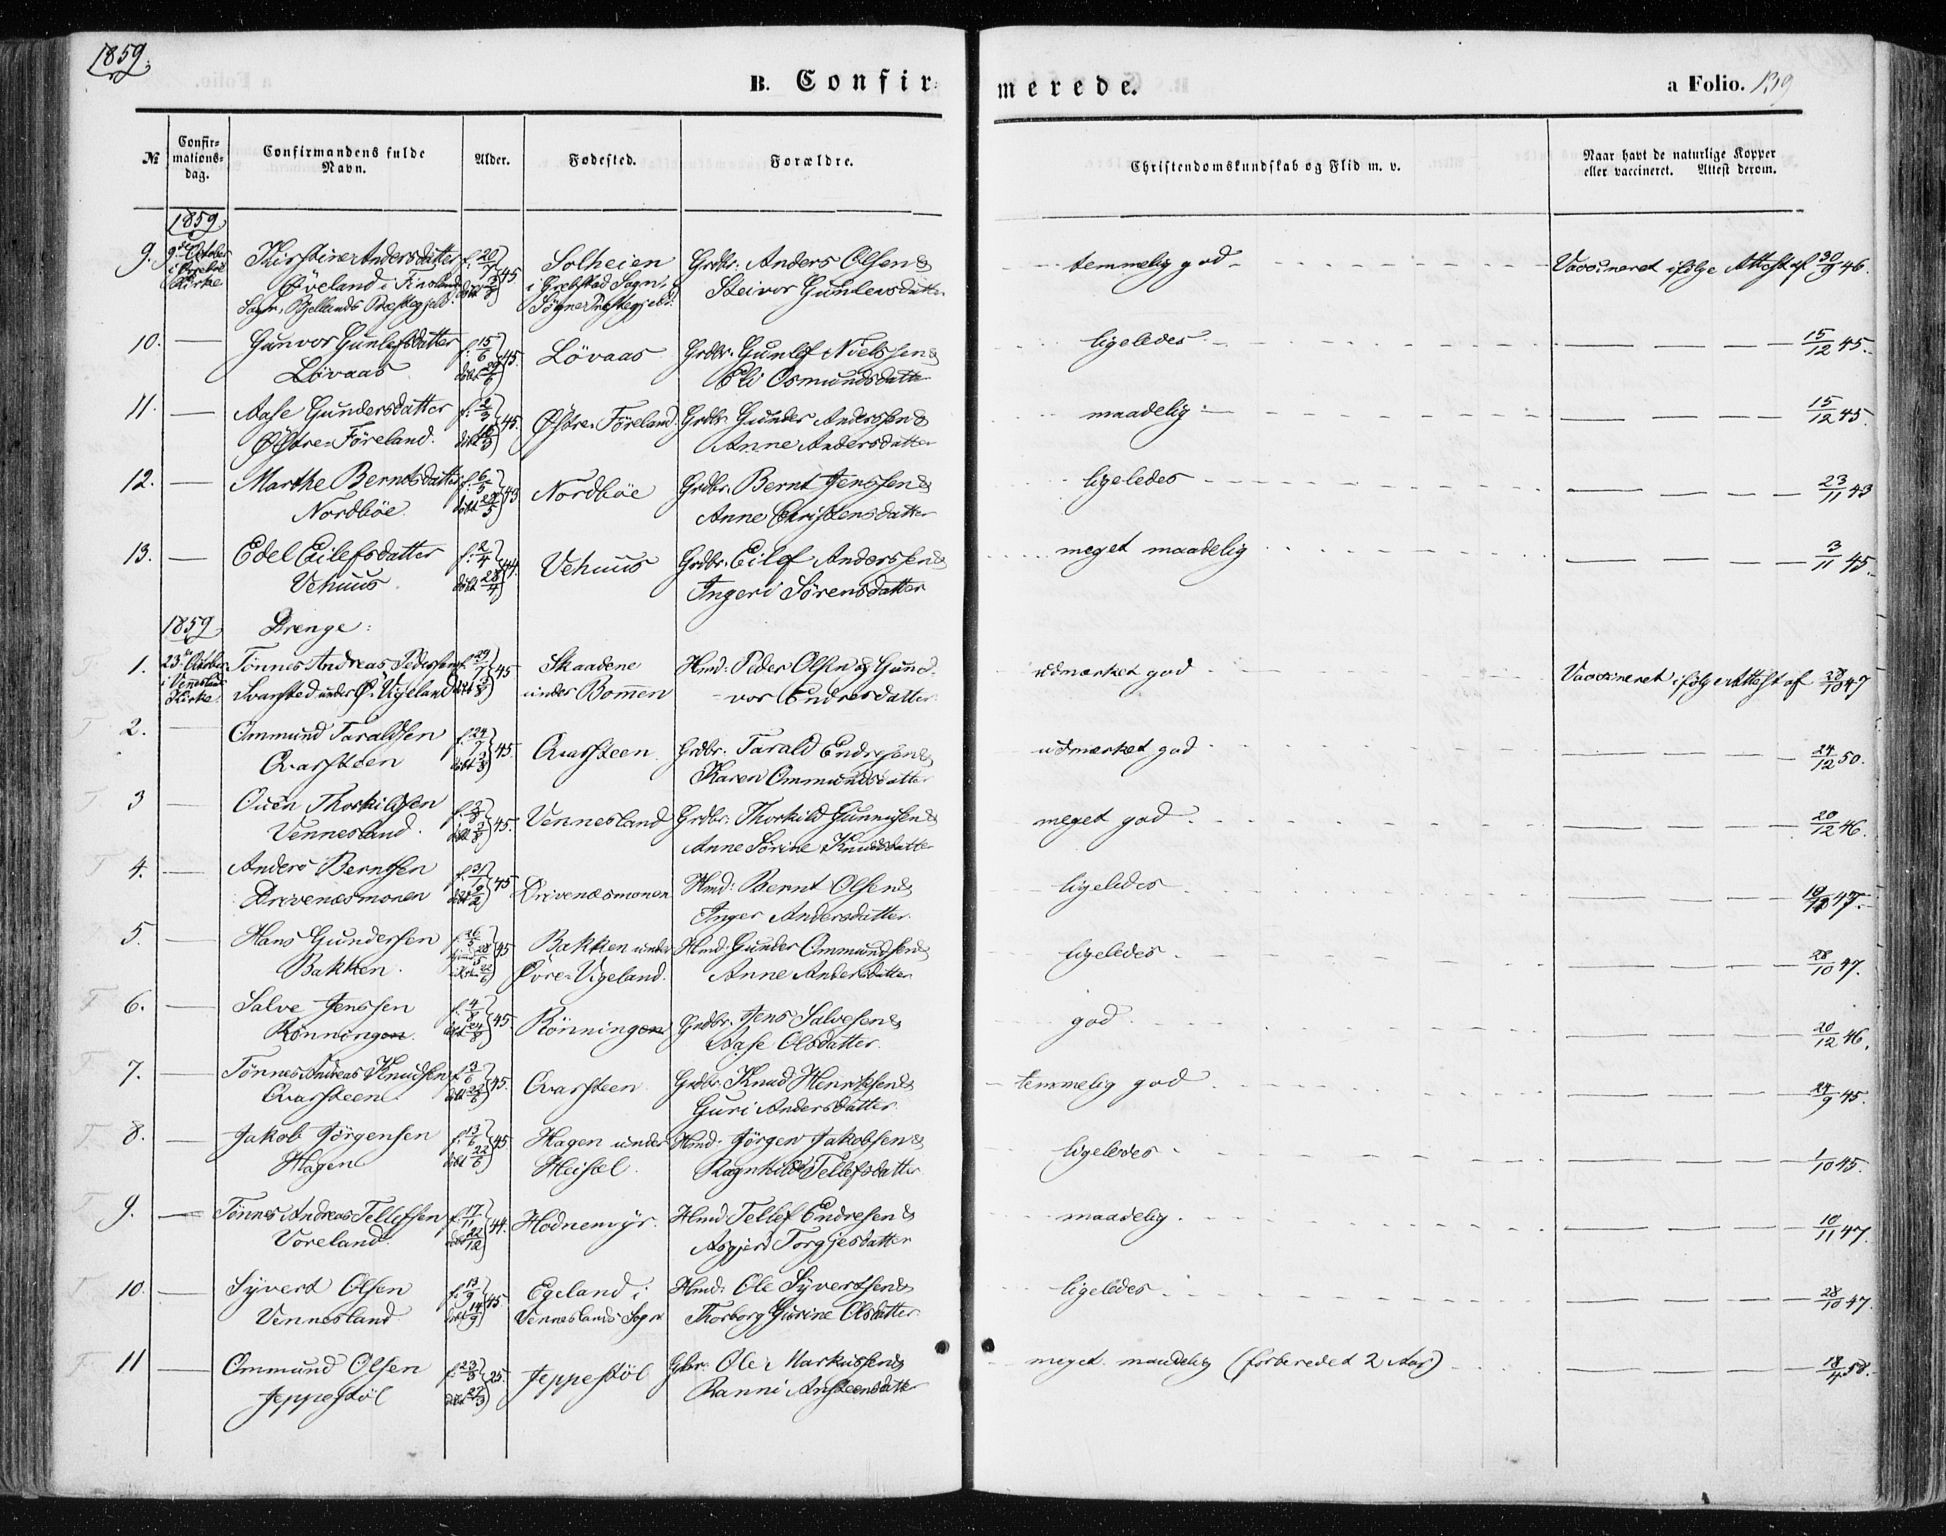 1859.
B. Confirmerede.
a Folio. 139
№ Confirmations-dag. Confirmandens fulde Navn. Alder. Fødested. Forældre. Christendomskundskab og Flid m. v. Naar havt de naturlige Kopper eller vaccineret. Attest derom.
1859
9. 9de October Kirstine Andersdatter f. 20/7 45 Solheien Grdbr. Anders Olsen & temmelig god Vaccineret ifølge Attest af 30/9 46.
Kirke Øveland i Finsland i Grebstad Sogn, Steivor Gunlevsdatter
Sogn, Bjellands Præstegjeld. Søgne Præstegjeld.
10. — Gunvor Gunlefsdatter f. 15/6 45. Løvaas Grdbr. Gunlef Nielssen & ligeledes 15/12 45.
Løvaas døbt 29/6 Eli Osmundsdatter
11. — Aase Gundersdatter f. 2/3 45. Østre-Föreland Grdbr. Gunder Anderssen & maadelig 15/12 45.
Østre-Föreland. døbt 16/3 Anne Andersdatter
12. — Marthe Berntsdatter f. 6/5 43 Nordböe Grdbr. Bernt Jenssen & ligeledes 23/11 43
Nordböe. Anne Christensdatter
13. — Edel Eilefsdatter f. 2/4 44. Vehuus Grdbr. Eilef Anderssen & meget maadelig 3/11 45.
Vehuus. døbt 28/4 Ingeri Sörensdatter
1859 Drenge:
1. 23de October Tönnes Andreas Pedersen f. 29/7 45 Skaadene Hmd: Peder Olsen og Gun- udmærket god Vaccineret ifølge Attest af 28/10 47
i Vennesland Kirke Svarsted under Ø. Vigeland under Bommen vor Endresdatter
2. — Ommund Taraldsen f. 24/7 45. Qvarsteen Grdbr. Tarald Endresen & udmærket god 24/12 50.
Qvarsteen døbt 3/8 Karen Ommundsdatter
3 — Ouen Thorkildsen 45. Vennesland Grdbr. Thorkild Gunnysen & meget god 20/12 46.
Vennesland. Anne Sørine Knudsdatter
4. — Anders Berntsen 45 Drivenæsmonen Hmd: Bernt Olsen & ligeledes 47.
Drivenæsmonen Inger Andersdatter.
5. — Hans Gundersen f. 26/5 45 Bakken under Hmd: Gunder Ommundsen & ligeledes 28/10 47.
Bakken. Øvre-Vigeland. Anne Andersdatter
6. — Salve Jenssen f. 4/8 45. Rönningen Grdbr. Jens Salvesen & god 20/12 46.
Rönningen. døbt 24/8 Aase Olsdatter.
7. — Tönnes Andreas Knudsen f. 3/6 45. Qvarsteen Grdbr. Knud Henriksen & temmelig god 24/9 45.
Qvarsteen Guri Andersdatter.
8. — Jakob Jörgensen f. 13/6 45. Hagen under Hmd: Jörgen Jakobsen & ligeledes 1/10 45.
Hagen døbt 22/6 Heisel. Ragnhild Tellefsdatter
9. — Tönnes Andreas Tellefsen f. 17/11 44. Hodnemyr. Hmd Tellef Endresen & maadelig 10/11 47.
Voreland. døbt 22/12 Asgjerd Torgjesdatter
10. — Syvert Olsen f. 13/9 45 Egeland i Hmd: Ole Syvertsen & ligeledes 28/10 47.
Vennesland døbt 14/9 Vennesland Sogn Thorborg Gurine Olsdatter
11 — Ommund Olsen f. 23/3 25. Jeppestöl Gbr. Ole Markussen & meget maadelig (forberedet 2 Aar) 18/4 58.
Jeppestöl døbt 27/3 Ranni Ansteensdatter